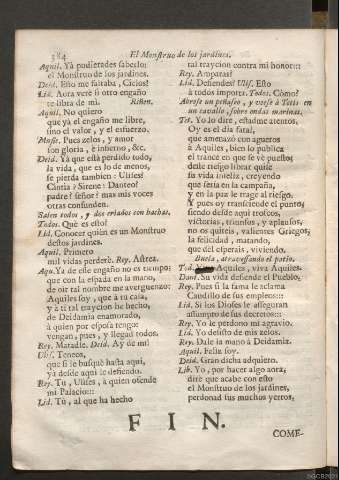 384
El Monstruo de los jardines.
Aquil. Yà pudierades saberlo:
el Monstruo de los jardines.
Deid. Esto me faltaba, Cielos!
Lid. Aora verè si otro engaño
te libra de mi. Riñen.
Aquil. No quiero
que ya el engaño me libre,
sino el valor, y el esfuerzo.
Musc. Pues zelos, y amor
son gloria, è infierno, &c.
Deid. Yà que està perdido todo,
la vida, que es lo de menos,
se pierda tambien: Ulises!
Cintia? Sirene? Danteo?
padre? señor? mas mis voces
otras confunden.
Salen todos, y dos criados con hachas.
Todos. Què es esto?
Lid. Conocer quien es un Monstruo
destos jardines.
Aquil. Primero
mil vidas perderè. Rey. Astrea.
Aqu. Ya de esse engaño no es tiempo:
que con la espada en la mano,
de oir tal nombre me averguenzo:
Aquiles soy, que à tu casa,
y à ti tal traycion he hecho,
de Deidamia enamorado,
à quien por esposa tengo:
vengan, pues, y llegad todos.
Rey. Matadle. Deid. Ay de mi!
Ulis. Teneos,
que si le busquè hasta aqui,
ya desde aqui le defiendo.
Rey. Tu, Ulises, à quien ofende
mi Palacio:::
Lid. Tu, al que ha hecho
tal traycion contra mi honor:::
Rey. Amparas?
Lid. Defiendes? Ulis. Esto
à todos importa. Todos. Còmo?
Abrese un peñasco, y vese à Tetis en
un cavallo, sobre ondas marinas.
Tet. Yo lo dirè, estadme atentos.
Oy es el dia fatal,
que amenazò con agueros
à Aquiles, bien lo publica
el trance en que se vè puesto;
deste riesgo librar quise
su vida infeliz, creyendo
que seria en la campaña,
y en la paz le trage al riesgo.
Y pues oy transciende el punto,
siendo desde aqui trofeos,
victorias, triunfos, y aplausos,
no os quiteis, valientes Griegos,
la felicidad, matando,
que del esperais, viviendo.
Buela, atravessando el patio.
Tod. Aquiles, viva Aquiles.
Dant. Su vida defiende el Pueblo.
Rey. Pues si la fama le aclama
Caudillo de sus empleos:::
Lid. Si los Dioses le asseguran
assumpto de sus decretos:::
Rey. Yo le perdono mi agravio.
Lid. Yo desisto de mis zelos.
Rey. Dale la mano à Deidamia.
Aquil. Feliz soy.
Deid. Gran dicha adquiero.
Lib. Yo, por hacer algo aora,
dirè que acabe con esto
el Monstruo de los jardines,
perdonad sus muchos yerros.
FIN.
COME-